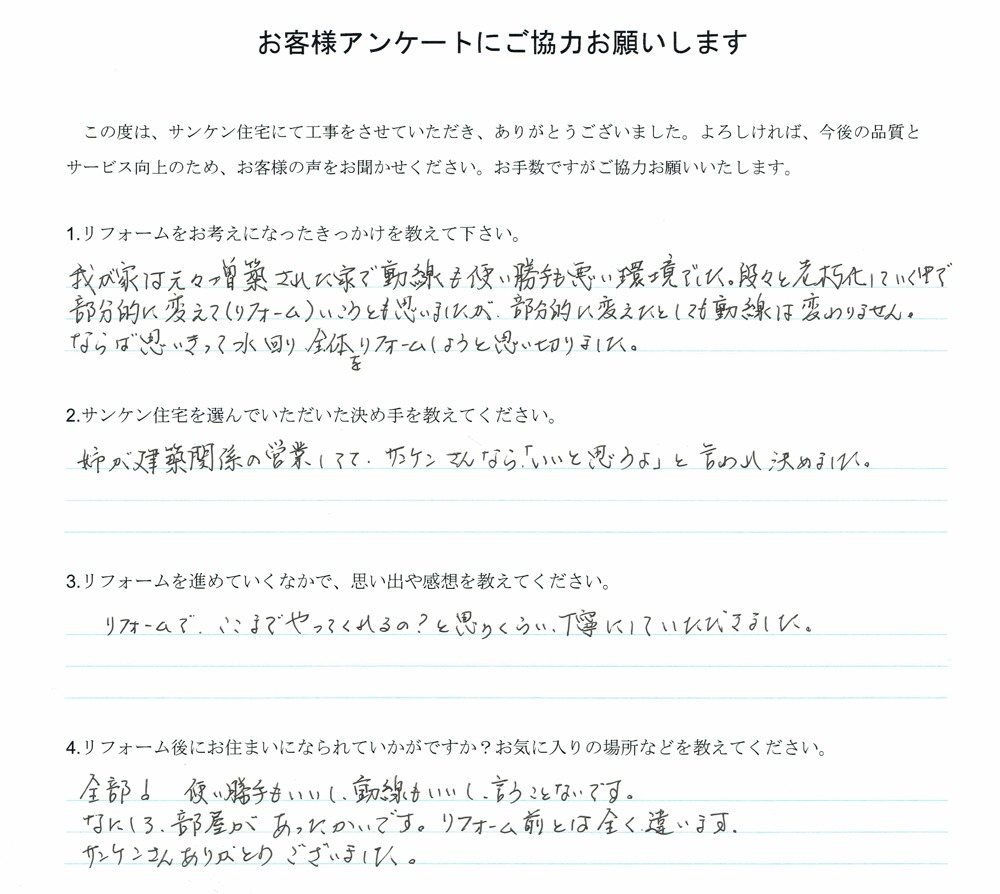 お客様アンケートにご協力お願いします
この度は、サンケン住宅にて工事をさせていただき、ありがとうございました。よろしければ、今後の品質と
サービス向上のため、お客様の声をお聞かせください。お手数ですがご協力お願いいたします。
1.リフォームをお考えになったきっかけを教えて下さい。
我が家は元々増築された家で動線も使い勝手も悪い環境でした。段々と老朽化していく中で
部分的に変えて(リフォーム)いこうとも思いましたが、部分的に変えたとしても動線は変わりません。
ならば思いきって水回り全体をリフォームしようと思い切りました。
2.サンケン住宅を選んでいただいた決め手を教えてください。
姉が建築関係の営業してて、サンケンさんなら「いいと思うよ」と言われ決めました。
3.リフォームを進めていくなかで、思い出や感想を教えてください。
リフォームで、ここまでやってくれるの?と思うくらい、丁寧にしていただきました。
4.リフォーム後にお住まいになられていかがですか?お気に入りの場所などを教えてください。
全部! 使い勝手もいいし、動線もいいし、言うことないです。
なにしろ、部屋があったかいです。リフォーム前とは全く違います。
サンケンさんありがとうございました。